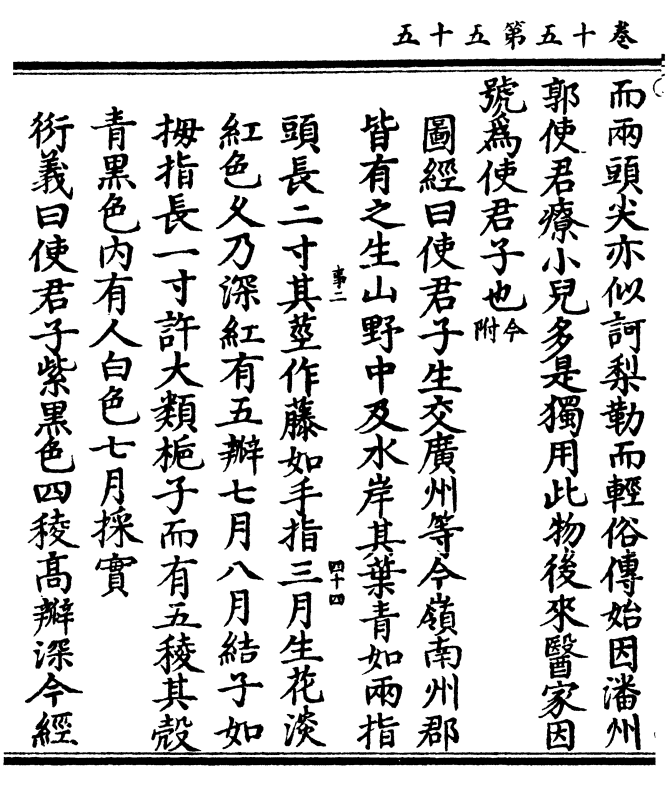 卷十五第五十五
而兩頭尖亦似訶梨勒而輕俗傳始因潘州
郭使君療小兒多是獨用此物後來醫家因
號爲使君子也今附
圖經曰使君子生交廣州等今嶺南州郡
皆有之生山野中及水岸其葉青如兩指
頭長二寸其莖作藤如手指三月生花淡
事二
四十四
紅色乆乃深紅有五瓣七月八月結子如
拇指長一寸許大類梔子而有五稜其殼
青黑色內有人白色七月採實
衍義曰使君子紫黑色四稜高瓣深今經